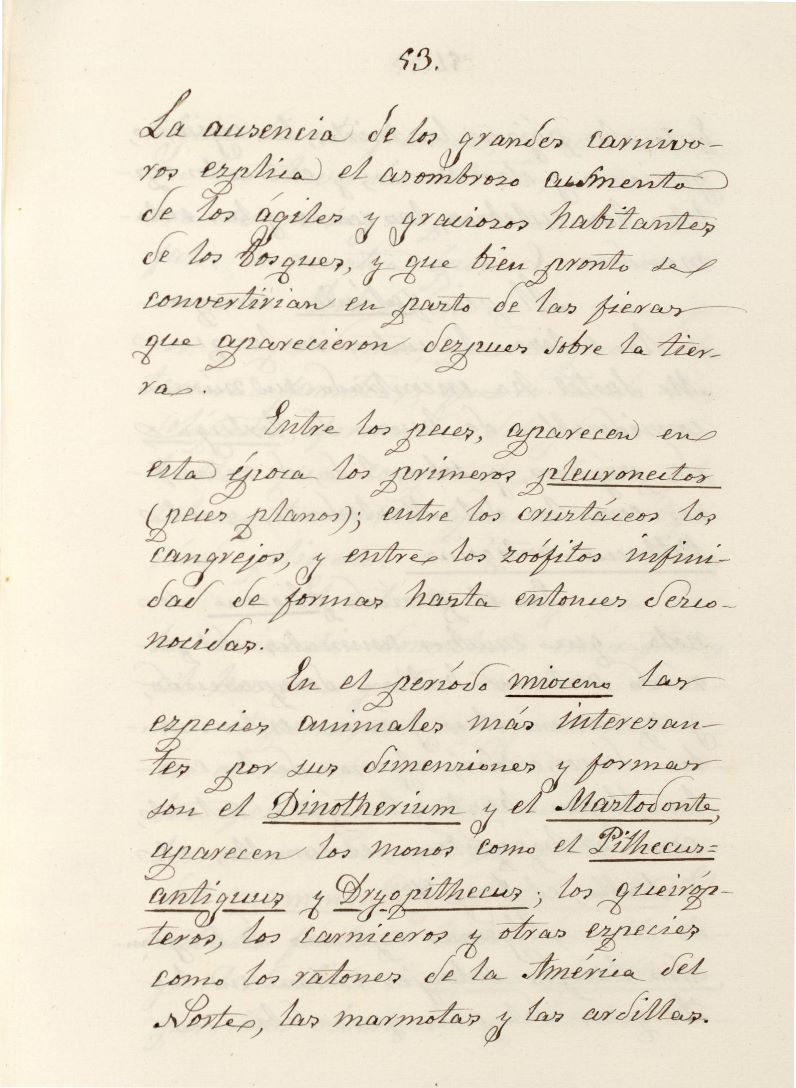 53.
La ausencia de los grandes carnivo-
ros esplica el asombroso aumento
de los ágiles y graciosos habitantes
de los bosques, y que bien pronto se
convertirian en pasto de las fieras
que aparecieron despues sobre la tier-
ra.
Entre los peces, aparecen en
esta época los primeros pleuronectos
(peces planos); entre los crustáceos los
cangrejos, y entre los zoófitos infini-
dad de formas hasta entonces desco-
nocidas.
En el período mioceno las
especies animales más interesan-
tes por sus dimensiones y formas
son el Dinotherium y el Mastodonte,
aparecen los monos como el Pithecus=
antiquus y Dryopithecus; los queiróp-
teros, los carniceros y otras especies
como los ratones de la América del
Norte, las marmotas y las ardillas.